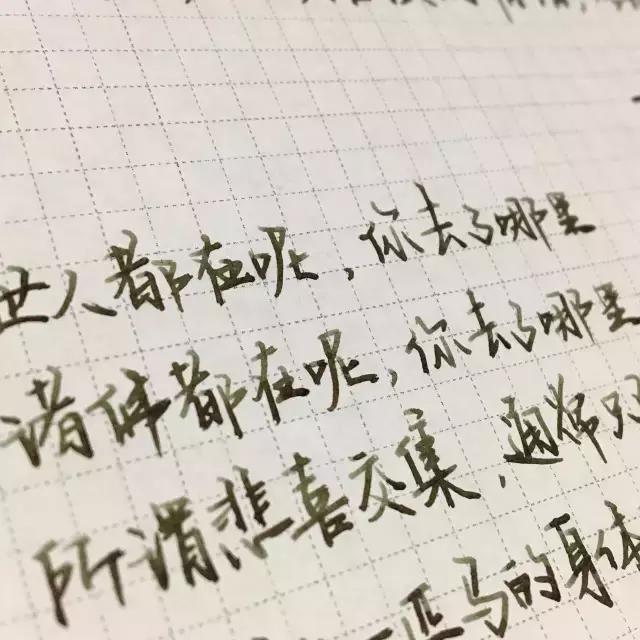 世人都在呢,你去了哪里
诸佛都在呢,你去了哪里
所谓悲喜交集,
一匹马的身体